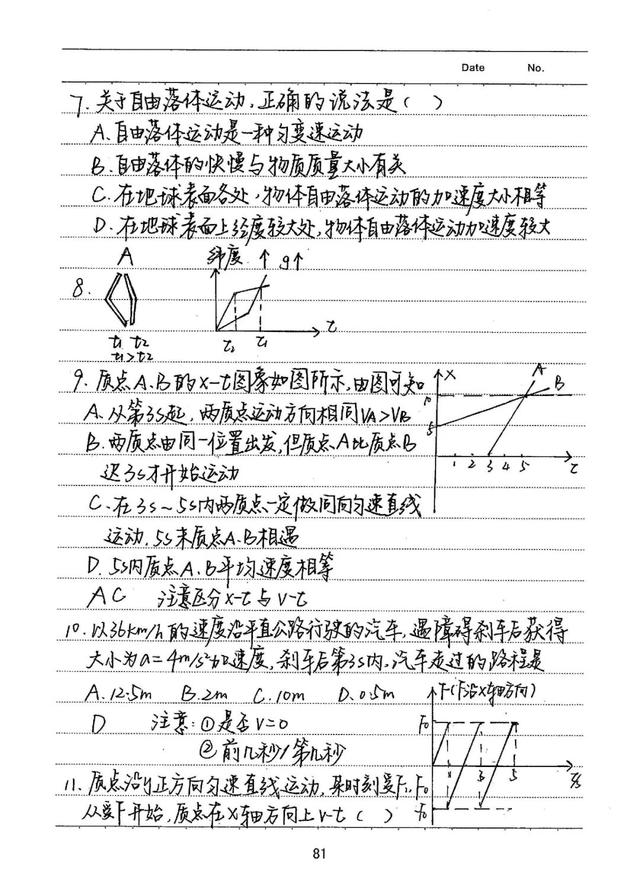 Date No.
7. 关于自由落体运动,正确的说法是( )
A. 自由落体运动是一种匀变速运动
B. 自由落体的快慢与物质质量大小有关
C. 在地球表面各处,物体自由落体运动的加速度大小相等
D. 在地球表面上经度较大处,物体自由落体运动加速度较大
A 纬度↑ g↑
8.
t
t₁ t₂ t₂ t₁
t₁>t₂
9. 质点A.B的x-t图象如图所示,由图可知
x A B
10
A. 从第3s起,两质点运动方向相同VA>VB
5
B. 两质点由同一位置出发,但质点A比质点B
迟3s才开始运动
1 2 3 4 5 t
C. 在3s~5s内两质点一定做同向匀速直线
运动,5s末质点A.B相遇
D. 5s内质点A.B平均速度相等
AC 注意区分x-t与v-t
10. 以36km/h的速度沿平直公路行驶的汽车,遇障碍刹车后获得
大小为a=4m/s²加速度,刹车后第3s内,汽车走过的路程是
A. 12.5m B. 2m C. 10m D. 0.5m
F(F沿x轴方向)
D 注意:①是否v=0
F₀
②前几秒/第几秒
1 3 5 t/s
11. 质点沿y正方向匀速直线运动,某时刻受F,F₀
从受F开始,质点在x轴方向上v-t( )
-F₀
81